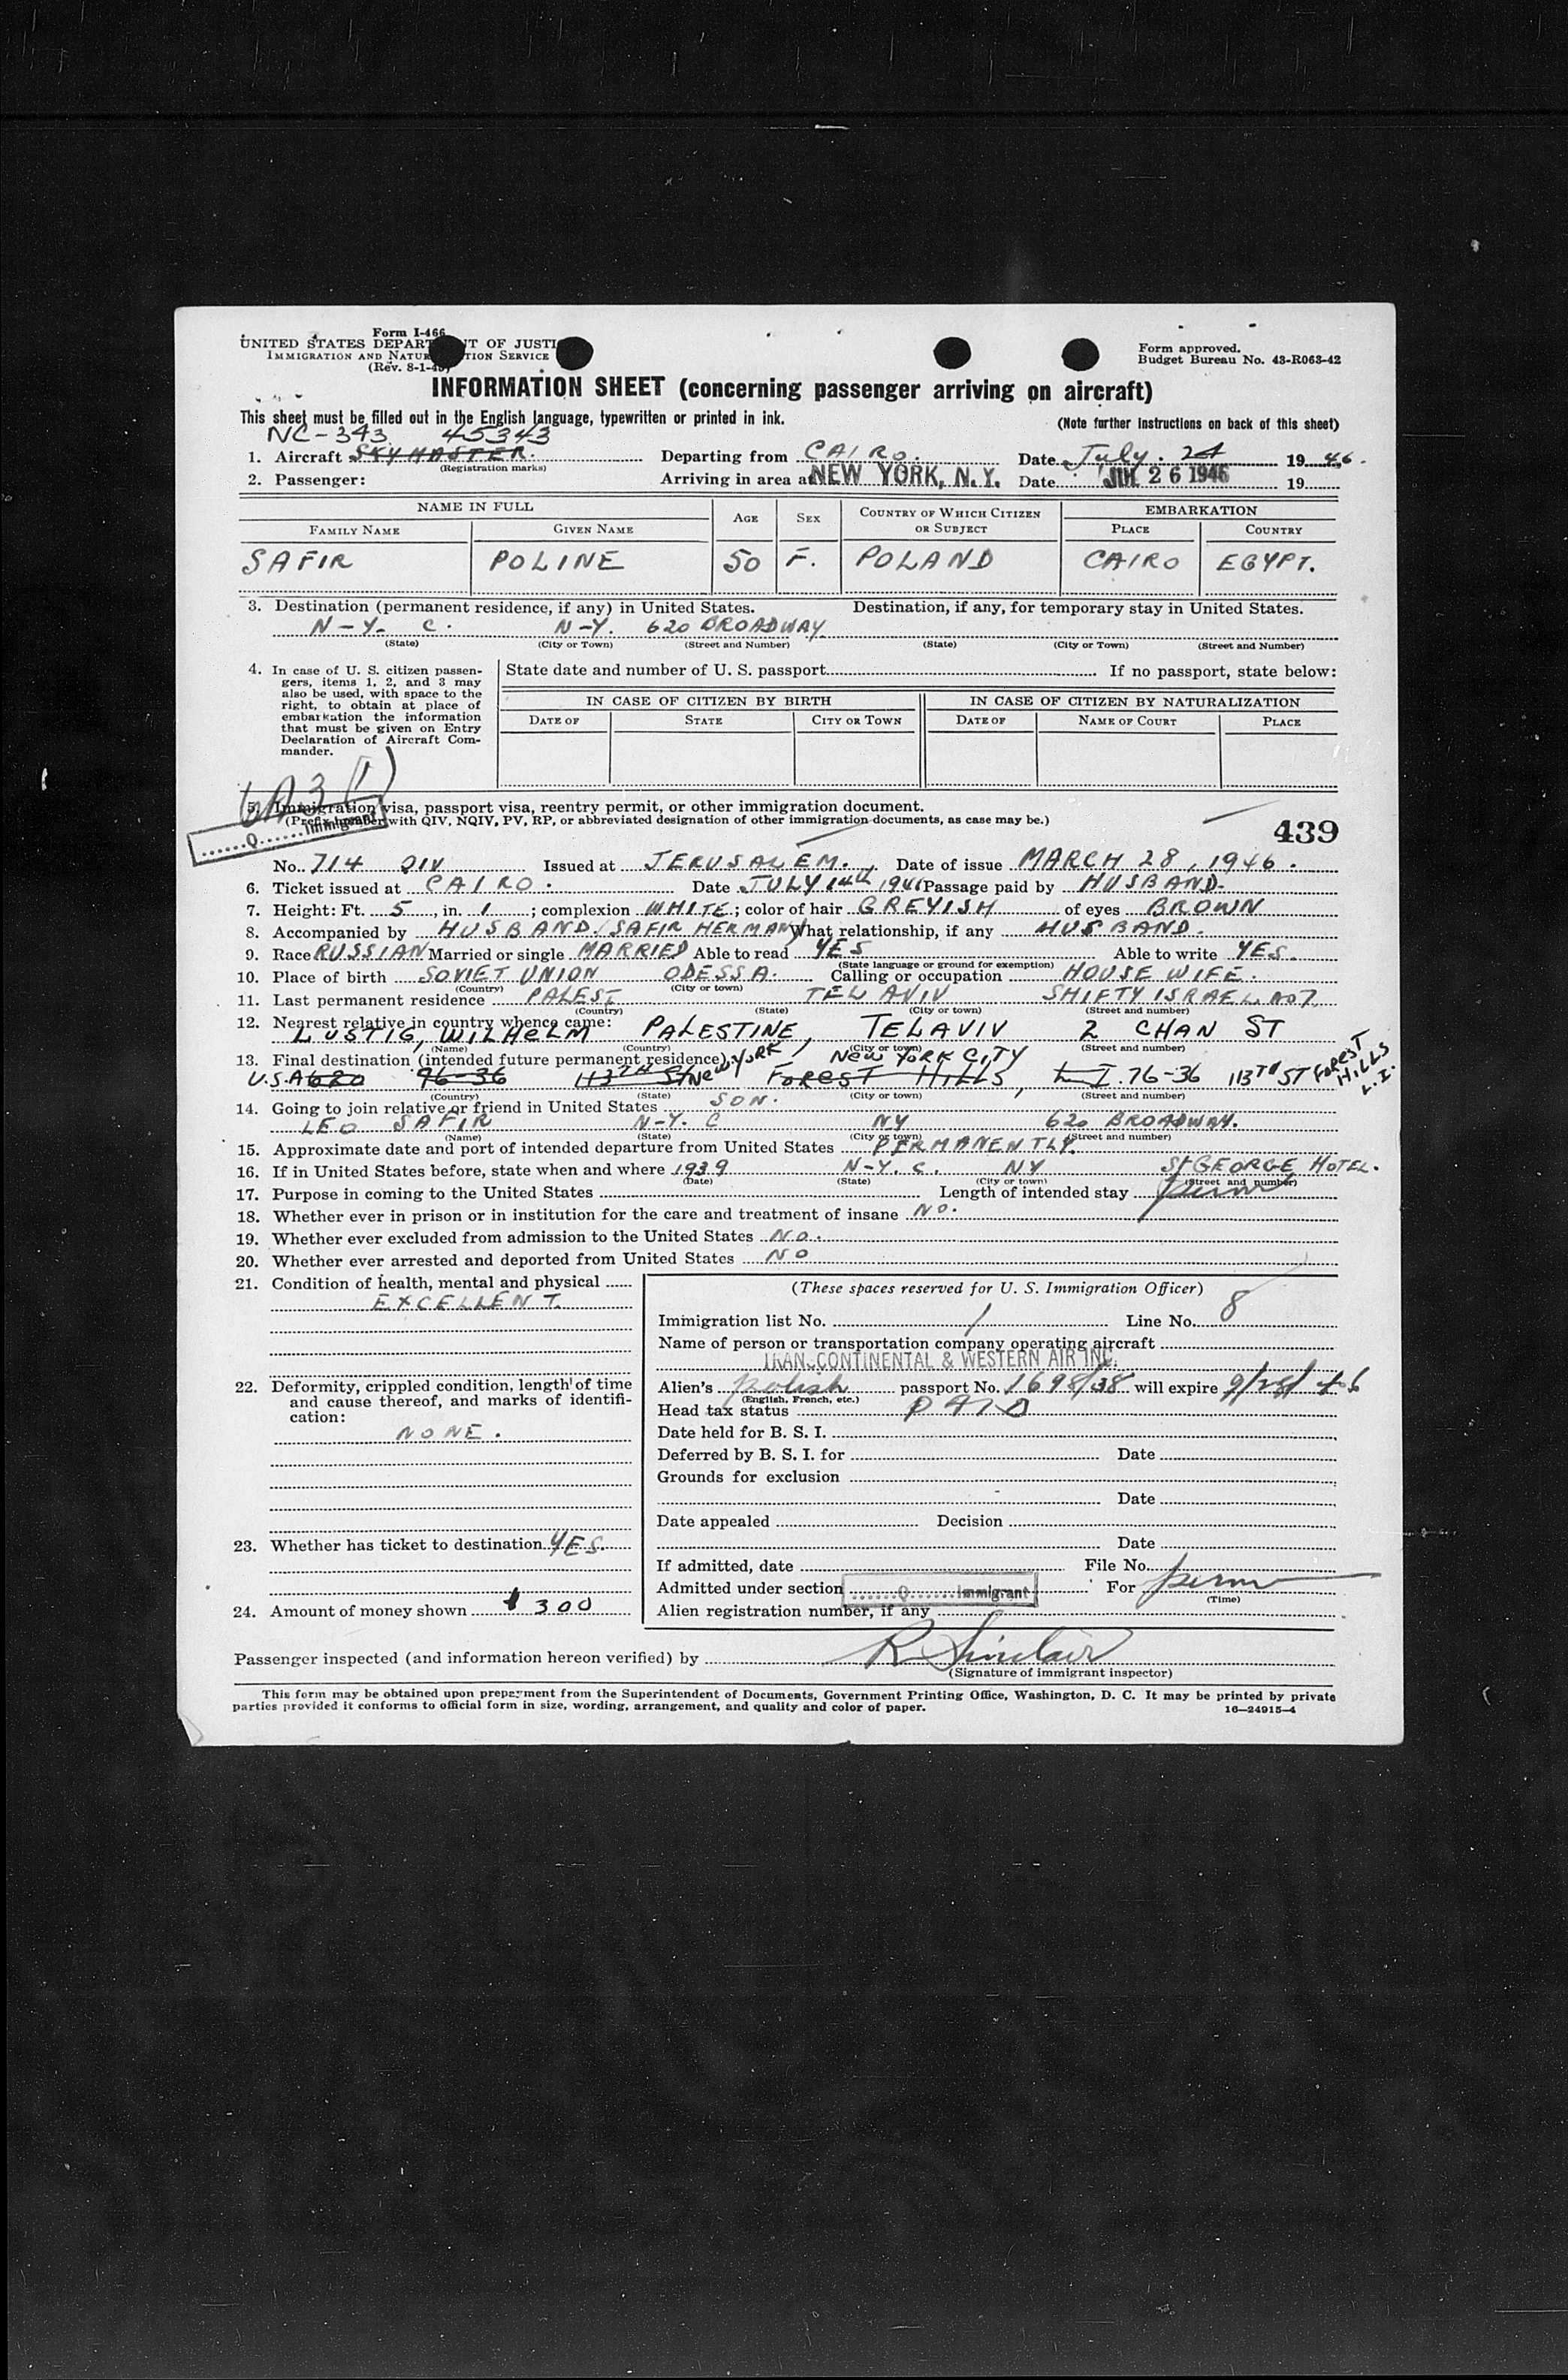 Form I-466
UNITED STATES DEPART T OF JUSTI
IMMIGRATION AND NATUR TION SERVICE
(Rev. 8-1-45)
Form approved.
Budget Bureau No. 43-R063-42
INFORMATION SHEET (concerning passenger arriving on aircraft)
This sheet must be filled out in the English language, typewritten or printed in ink. (Note further instructions on back of this sheet)
NC-343 45343
1. Aircraft SKYMASTER. Departing from CAIRO. Date July. 24 1946.
(Registration marks)
2. Passenger: Arriving in area at NEW YORK, N.Y. Date JUL 26 1946 19
NAME IN FULL AGE SEX COUNTRY OF WHICH CITIZEN OR SUBJECT EMBARKATION
FAMILY NAME GIVEN NAME PLACE COUNTRY
SAFIR POLINE 50 F. POLAND CAIRO EGYPT.
3. Destination (permanent residence, if any) in United States. Destination, if any, for temporary stay in United States.
N-Y. C. N-Y. 620 BROADWAY
(State) (City or Town) (Street and Number) (State) (City or Town) (Street and Number)
4. In case of U. S. citizen passengers, items 1, 2, and 3 may also be used, with space to the right, to obtain at place of embarkation the information that must be given on Entry Declaration of Aircraft Commander.
State date and number of U. S. passport If no passport, state below:
IN CASE OF CITIZEN BY BIRTH IN CASE OF CITIZEN BY NATURALIZATION
DATE OF STATE CITY OR TOWN DATE OF NAME OF COURT PLACE
5. Immigration visa, passport visa, reentry permit, or other immigration document.
(Prefix number with QIV, NQIV, PV, RP, or abbreviated designation of other immigration documents, as case may be.)
Q Immigrant
439
No. 714 QIV Issued at JERUSALEM. Date of issue MARCH 28, 1946.
6. Ticket issued at CAIRO. Date JULY 14th 1946 Passage paid by HUSBAND.
7. Height: Ft. 5, in. 1; complexion WHITE; color of hair GREYISH of eyes BROWN
8. Accompanied by HUSBAND/SAFIR HERMAN) What relationship, if any HUSBAND.
9. Race RUSSIAN Married or single MARRIED Able to read YES Able to write YES.
(State language or ground for exemption)
10. Place of birth SOVIET UNION ODESSA. Calling or occupation HOUSE WIFE.
(Country) (City or town)
11. Last permanent residence PALEST TEL AVIV SHIFTY ISRAEL No 7
(Country) (State) (City or town) (Street and number)
12. Nearest relative in country whence came:
LUSTIG, WILHELM PALESTINE, TELAVIV 2 CHAN ST
(Name) (Country) (City or town) (Street and number)
13. Final destination (intended future permanent residence) NEW YORK CITY
U.S.A 620 96-36 113TH St New YORK, FOREST HILLS, L.I. 76-36 113TH ST FOREST HILLS L.I.
(Country) (State) (City or town) (Street and number)
14. Going to join relative or friend in United States SON.
LEO SAFIR N-Y. C NY 620 BROADWAY.
(Name) (State) (City or town) (Street and number)
15. Approximate date and port of intended departure from United States PERMANENTLY.
16. If in United States before, state when and where 1939 N-Y. C. NY St GEORGE HOTEL.
(Date) (State) (City or town) (Street and number)
17. Purpose in coming to the United States Length of intended stay perm
18. Whether ever in prison or in institution for the care and treatment of insane NO.
19. Whether ever excluded from admission to the United States NO.
20. Whether ever arrested and deported from United States NO
21. Condition of health, mental and physical
EXCELLENT.
22. Deformity, crippled condition, length of time and cause thereof, and marks of identification:
NONE.
23. Whether has ticket to destination YES.
24. Amount of money shown $300
(These spaces reserved for U. S. Immigration Officer)
Immigration list No. 1 Line No. 8
Name of person or transportation company operating aircraft
TRANSCONTINENTAL & WESTERN AIR INC.
Alien's polish passport No. 1698/38 will expire 9/28/46
(English, French, etc.)
Head tax status PAID
Date held for B. S. I.
Deferred by B. S. I. for Date
Grounds for exclusion
Date
Date appealed Decision
Date
If admitted, date File No.
Admitted under section Q Immigrant For perm
(Time)
Alien registration number, if any
Passenger inspected (and information hereon verified) by R Sinclair
(Signature of immigrant inspector)
This form may be obtained upon prepayment from the Superintendent of Documents, Government Printing Office, Washington, D. C. It may be printed by private
parties provided it conforms to official form in size, wording, arrangement, and quality and color of paper. 16—24915-4